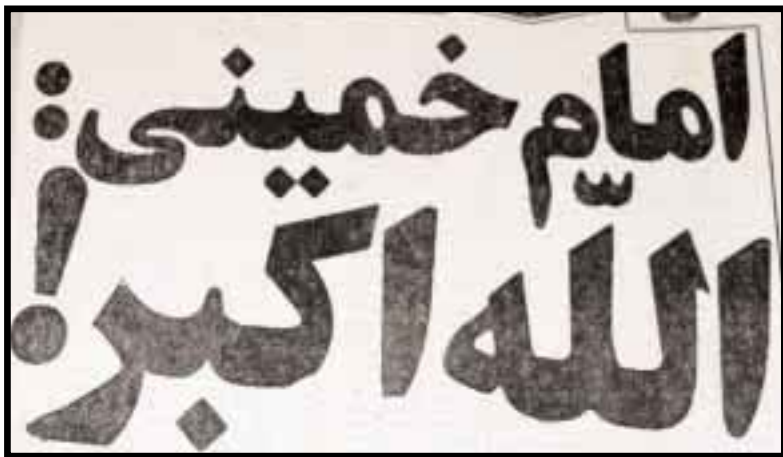 امام خمینی:
اللّه اکبر!